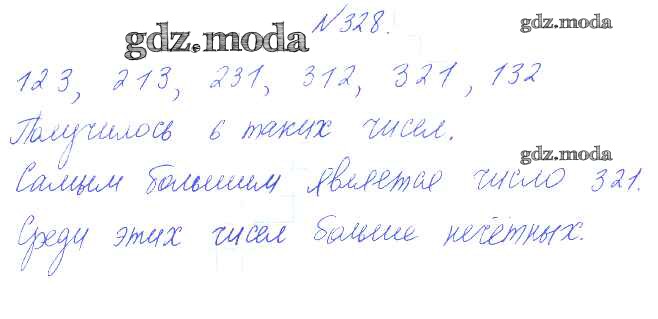 №328.
gdz.moda
gdz.moda
123, 213, 231, 312, 321, 132
Получилось 6 таких чисел.
gdz.moda
Самым большим является число 321.
Среди этих чисел больше нечётных.